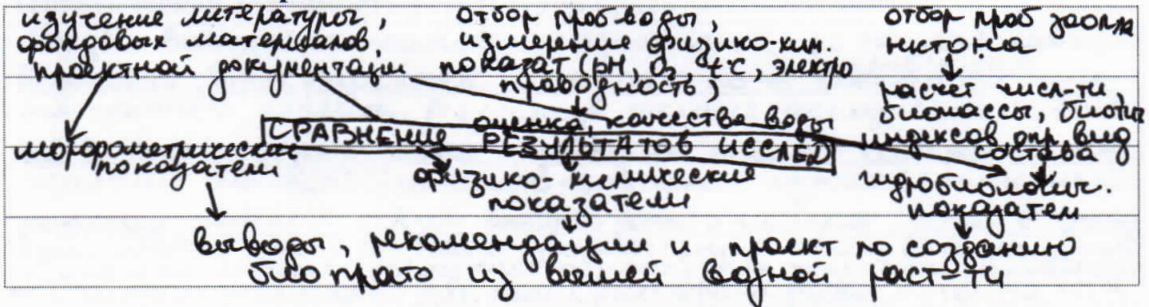 изучение литературы,
фондовых материалов
проектной документации
отбор проб воды,
измерение физико-хим.
показат (pH, O₂, t°C, электро
проводность
отбор проб зоопла
нктона
расчёт числ-ти,
биомассы, биотич
индексов, опр. вид
состава
оценка качества воды
СРАВНЕНИЕ РЕЗУЛЬТАТОВ ИССЛЕД
морфометрические
показатели
физико-химические
показатели
гидробиологич.
показатели
выводы, рекомендации и проект по созданию
биоплато из высшей водной раст-ти